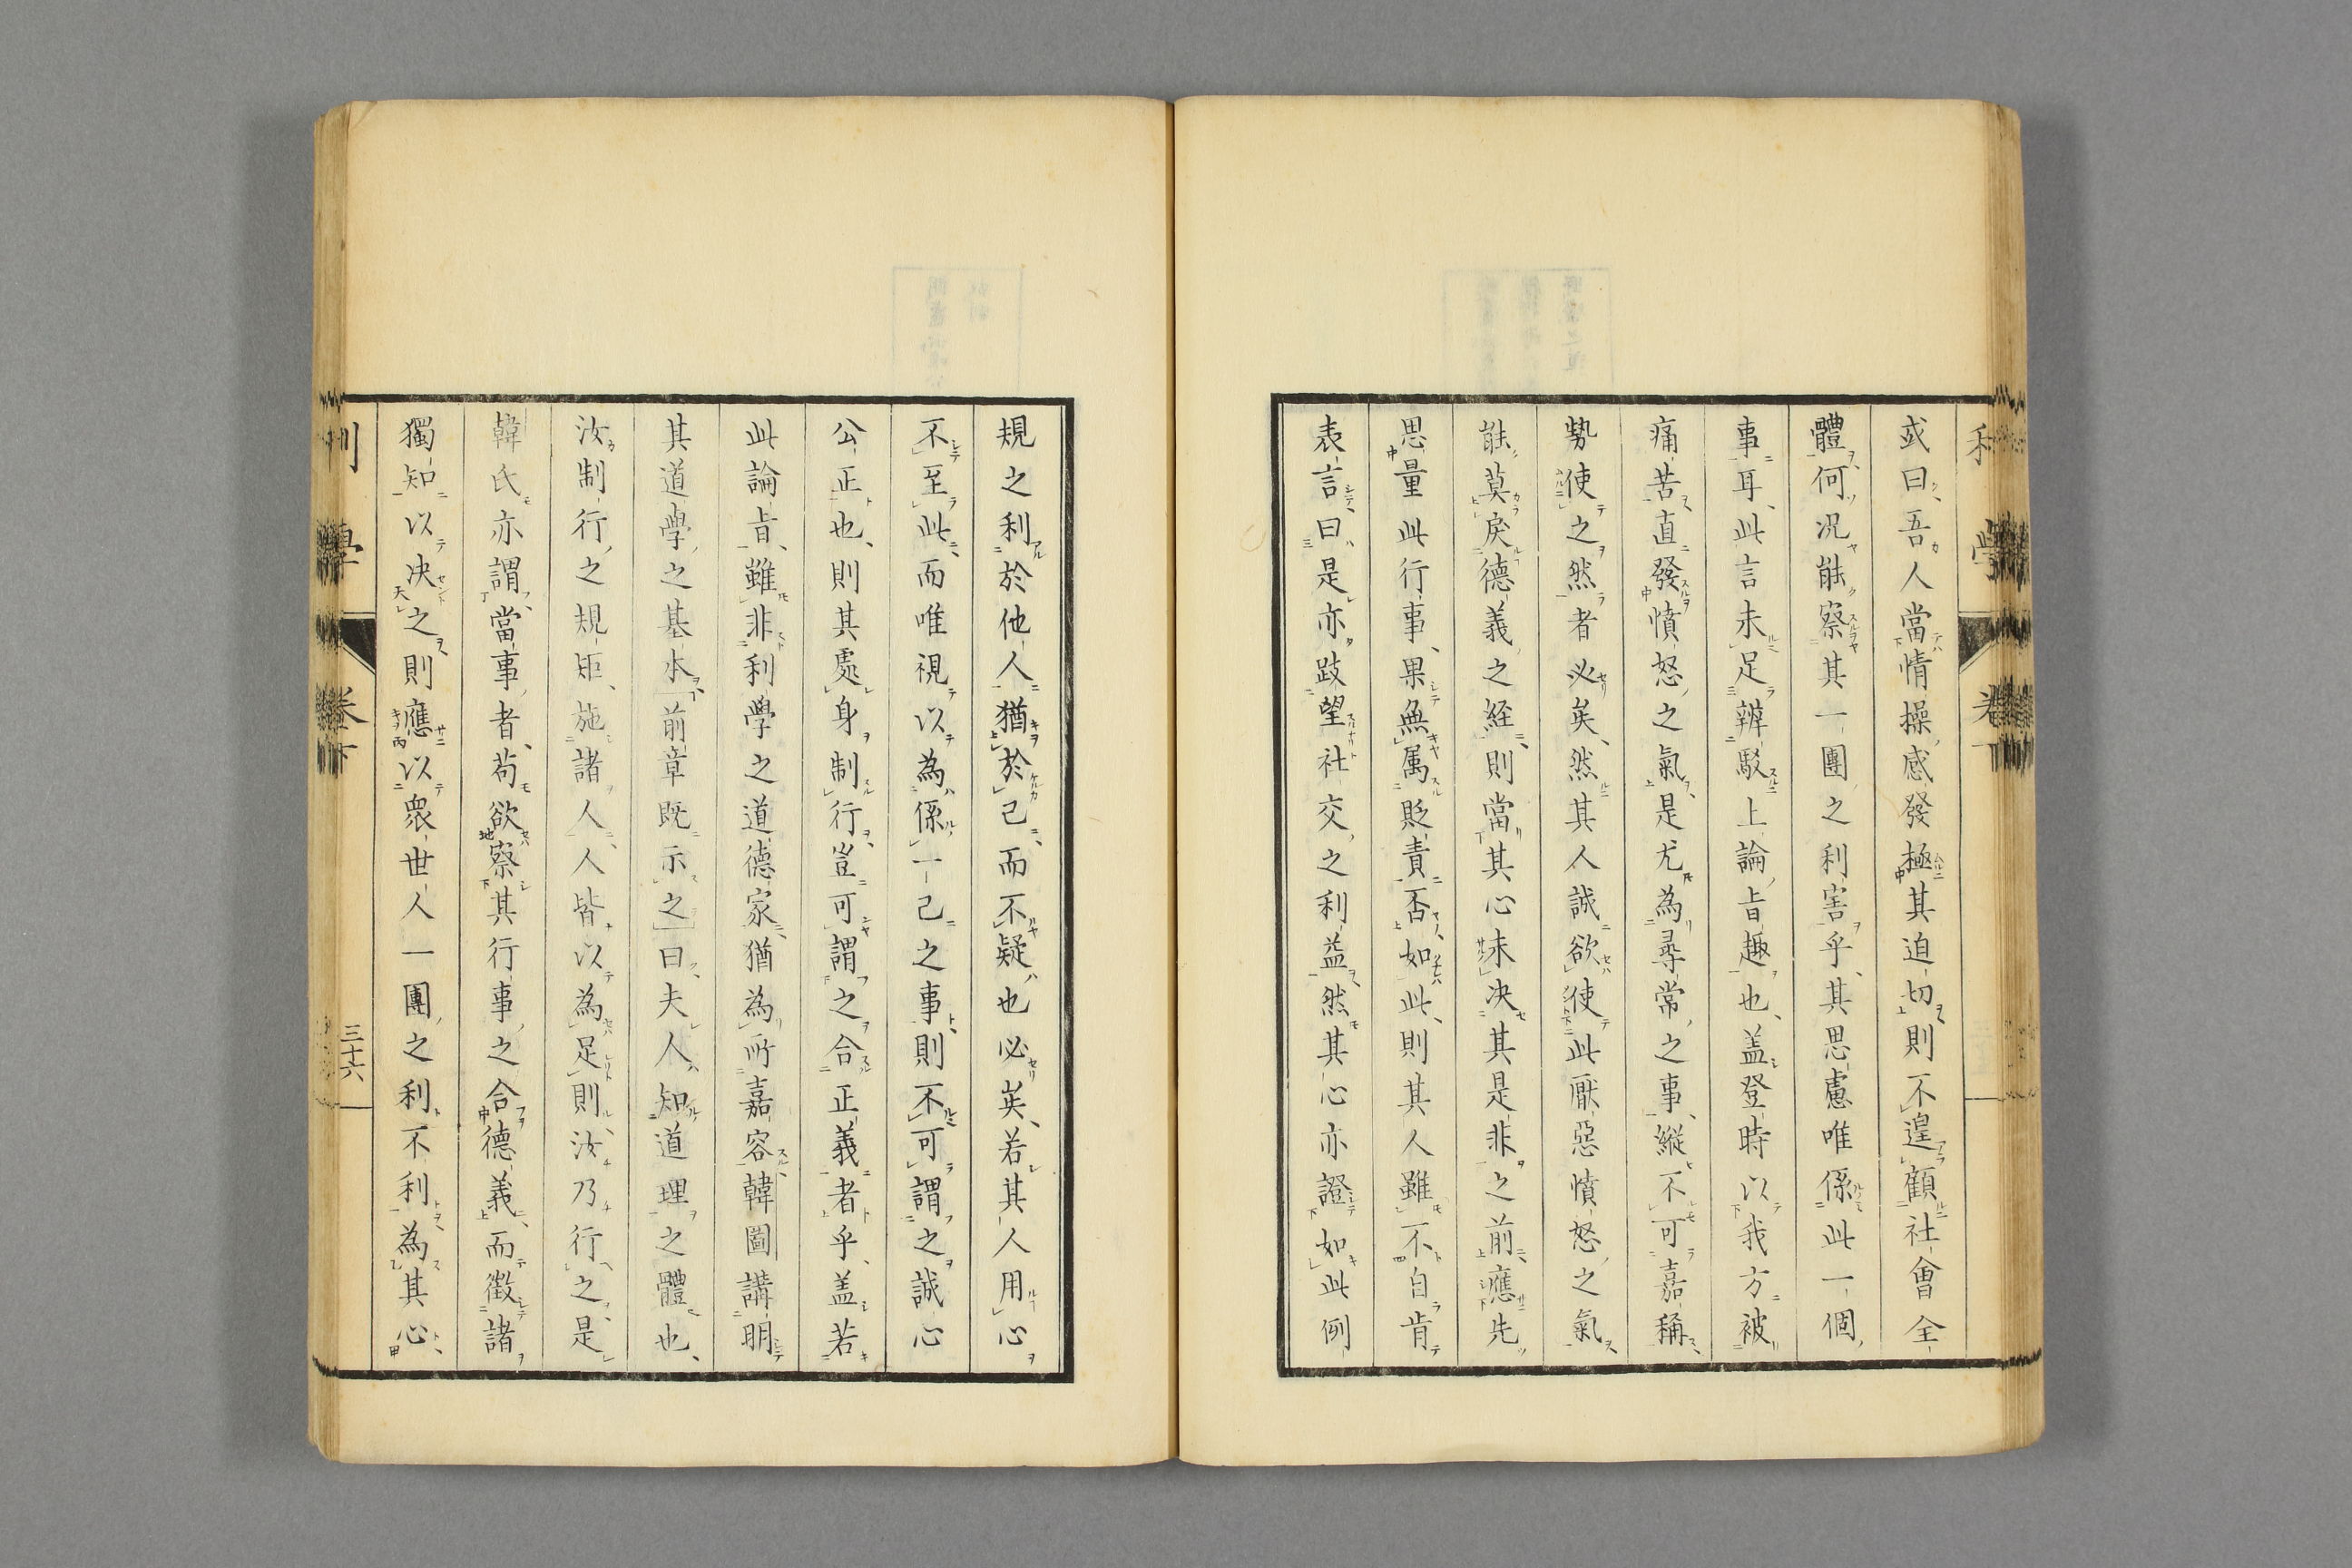 或曰吾人當情操感發極其迫切則不遑顧社會全
體何況能察其一團之利害乎其思慮唯係此一個
事耳此言未足辨駁上論旨趣也盖登時以我方被
痛苦直發憤怒之氣是尤為尋常之事縱不可嘉稱
勢使之然者必矣然其人誠欲使此厭惡憤怒之氣
能莫戻德義之経則當其心未决其是非之前應先
思量此行事果無属貶責否如此則其人雖不自肯
表言曰是亦跂望社交之利益然其心亦證如此例
規之利於他人猶於己而不疑也必矣若其人用心
不至此而唯視以為係一己之事則不可謂之誠心
公正也則其處身制行豈可謂之合正義者乎盖若
此論旨雖非利學之道德家猶為所嘉容韓圖講明
其道學之基本前章既示之曰夫人知道理之體也
汝制行之規矩施諸人人皆以為足則汝乃行之是
韓氏亦謂當事者苟欲察其行事之合德義而徵諸
獨知以决之則應以衆世人一團之利不利為其心
利學 卷下 三十六